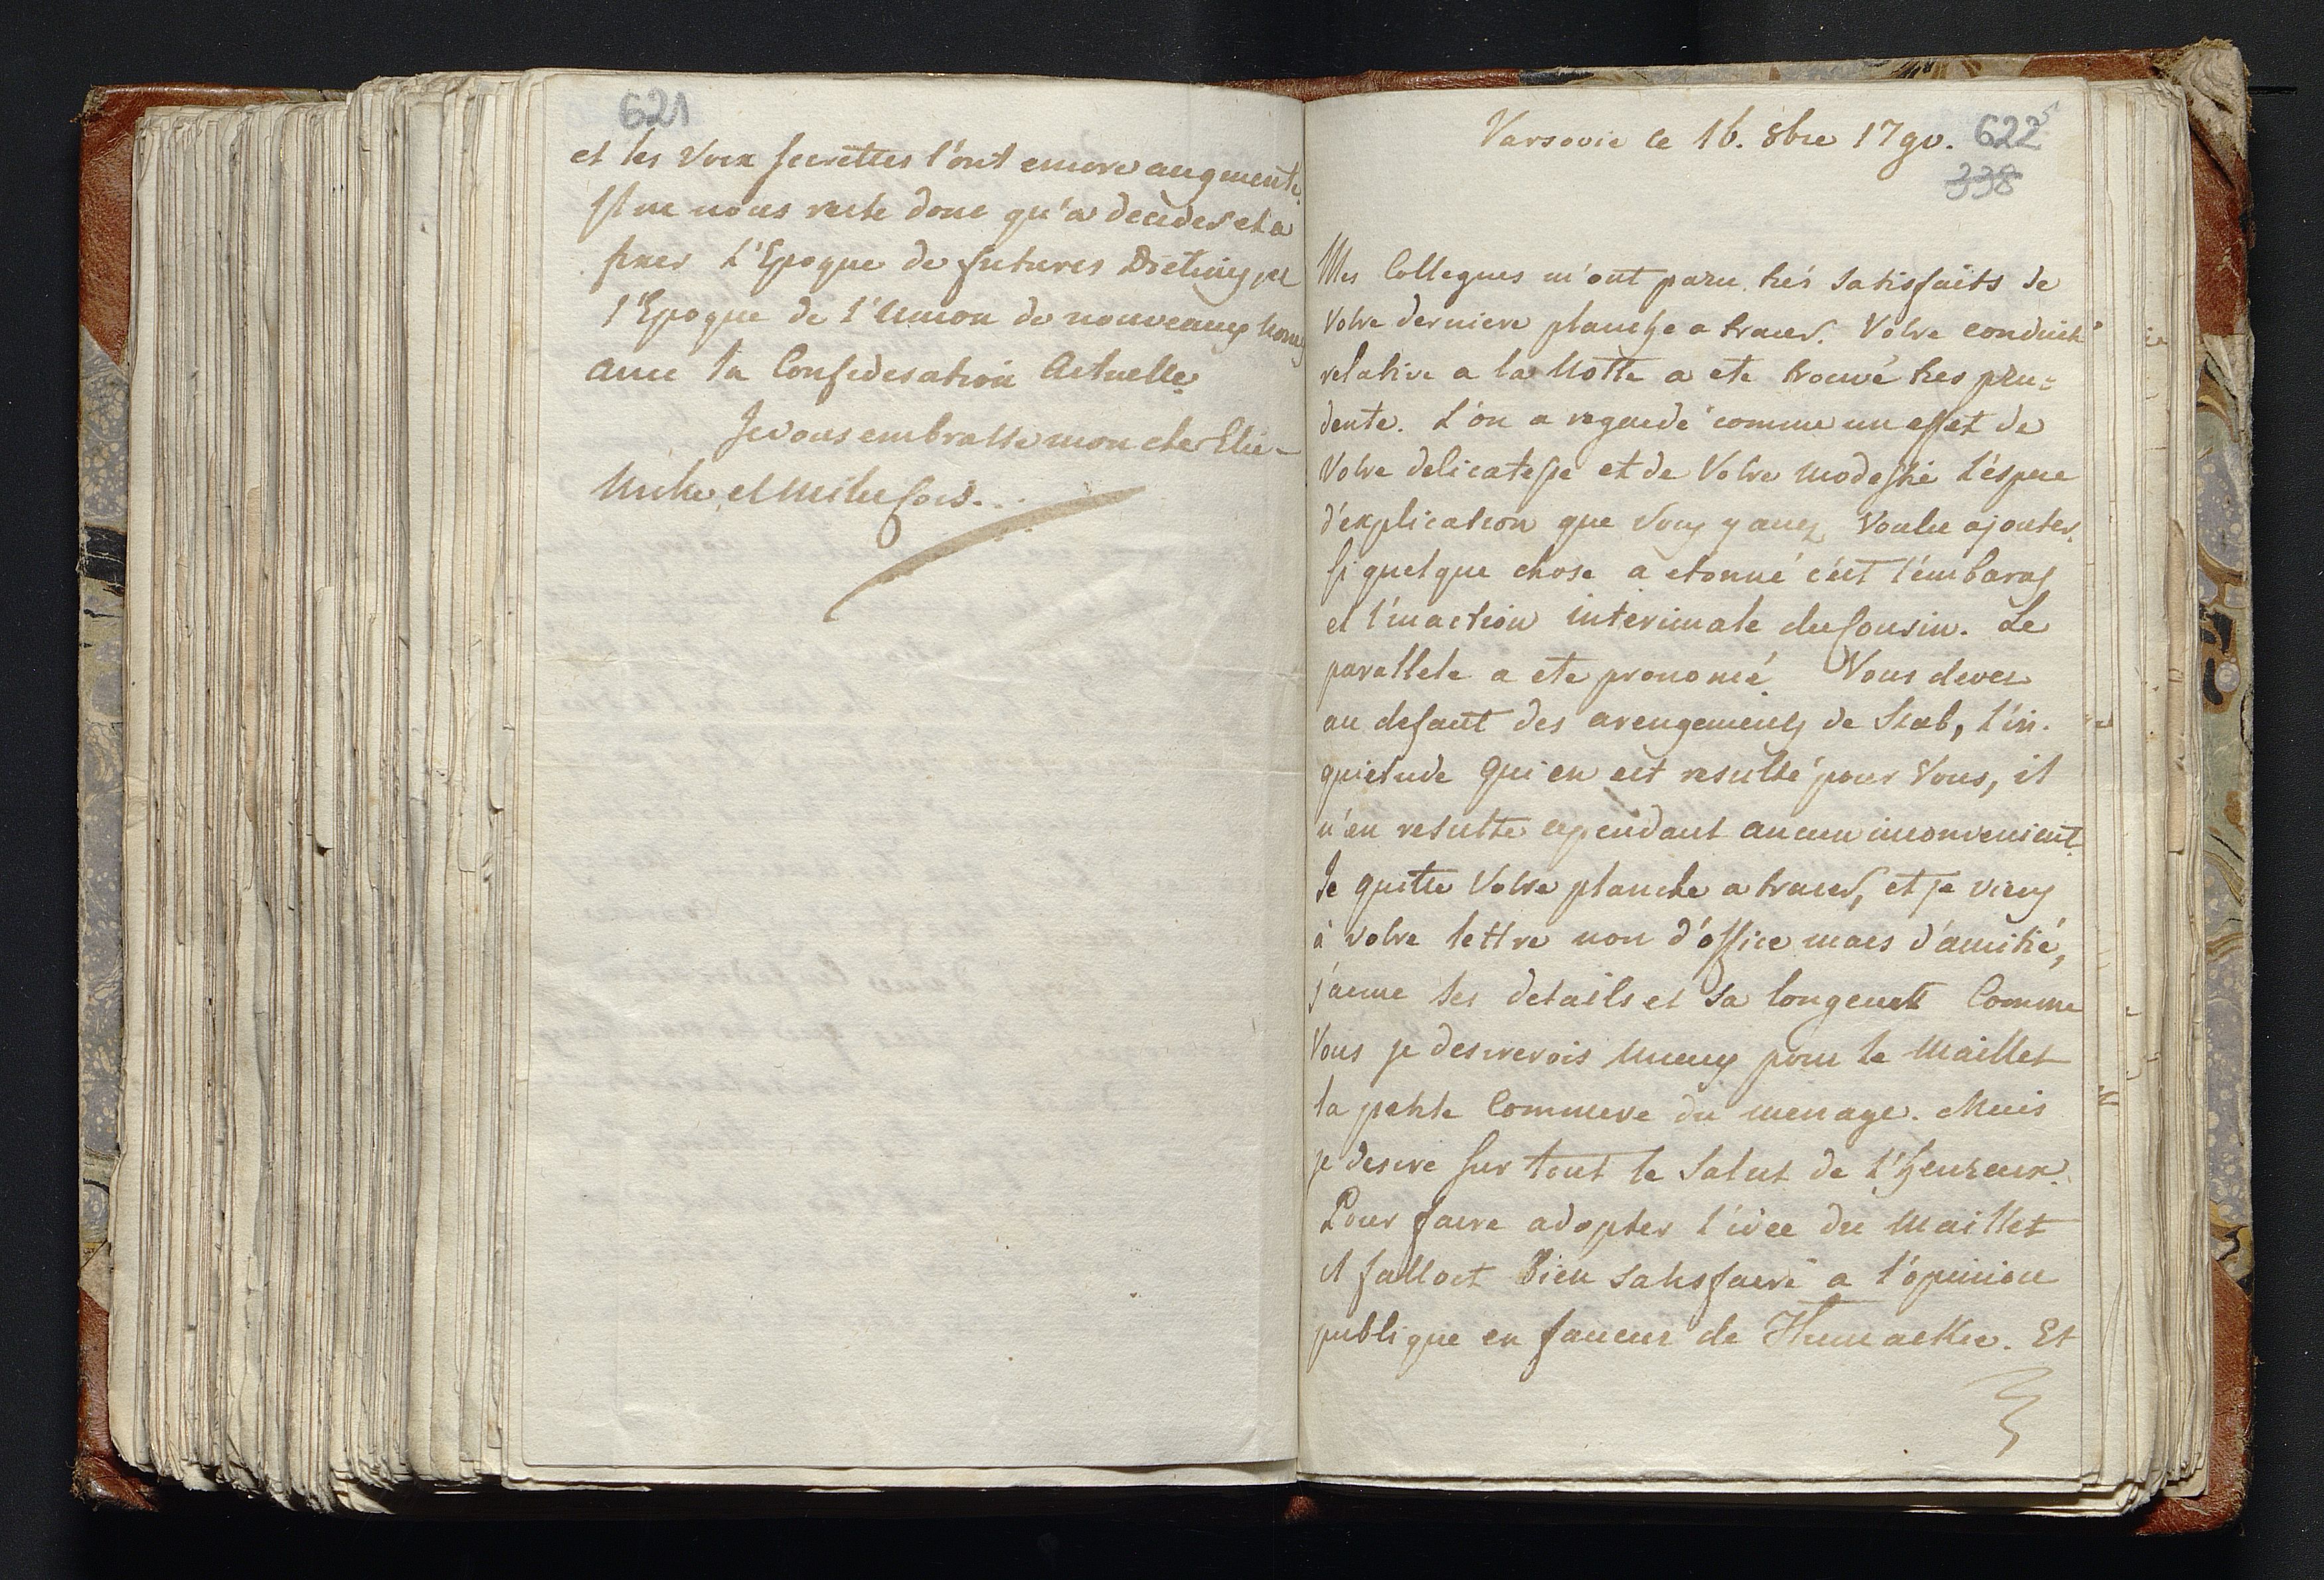 621
et les Voix secrettes l'ont encore augmenté.
Il ne nous reste donc qu'a decider et a
fixer L'Epoque de futures Dietines, et
l'Epoque de l'Union de nouveaux nonc
avec la Confederation Actuelle.
Je vous embrasse mon cher Elie
Mille et Mille fois..
Varsovie le 16. 8bre 1790.
622
338
Mes Collegues m'ont paru trés satisfaits de
Votre derniere planche a tracer. Votre conduite
relative a la Motte a ete trouvé tres pru-
dente. L'on a regardé comme un effet de
Votre delicatesse et de Votre Modestie l'éspece
d'explication que Vous y avez Voulu ajouter.
Si quelque chose a etonné c'est l'embaras
et l'inaction interimale du Cousin. Le
parallele a ete prononcé. Vous devez
au defaut des arengements de Stab, l'in-
quietude qui en est resulté pour Vous, il
n'en resulte cependant aucun inconvenient.
Je quitte Votre planche a tracer, et je viens
à votre lettre non d'office mais d'amitié,
j'aime ses details et sa longeur Comme
Vous je desirerois Mieux pour le Maillet
la petite Commere du menage. Mais
je desire sur tout le Salut de l'heureux.
Pour faire adopter l'idee du Maillet
il falloit Bien satisfaire a l'opinion
publique en faveur de . Et